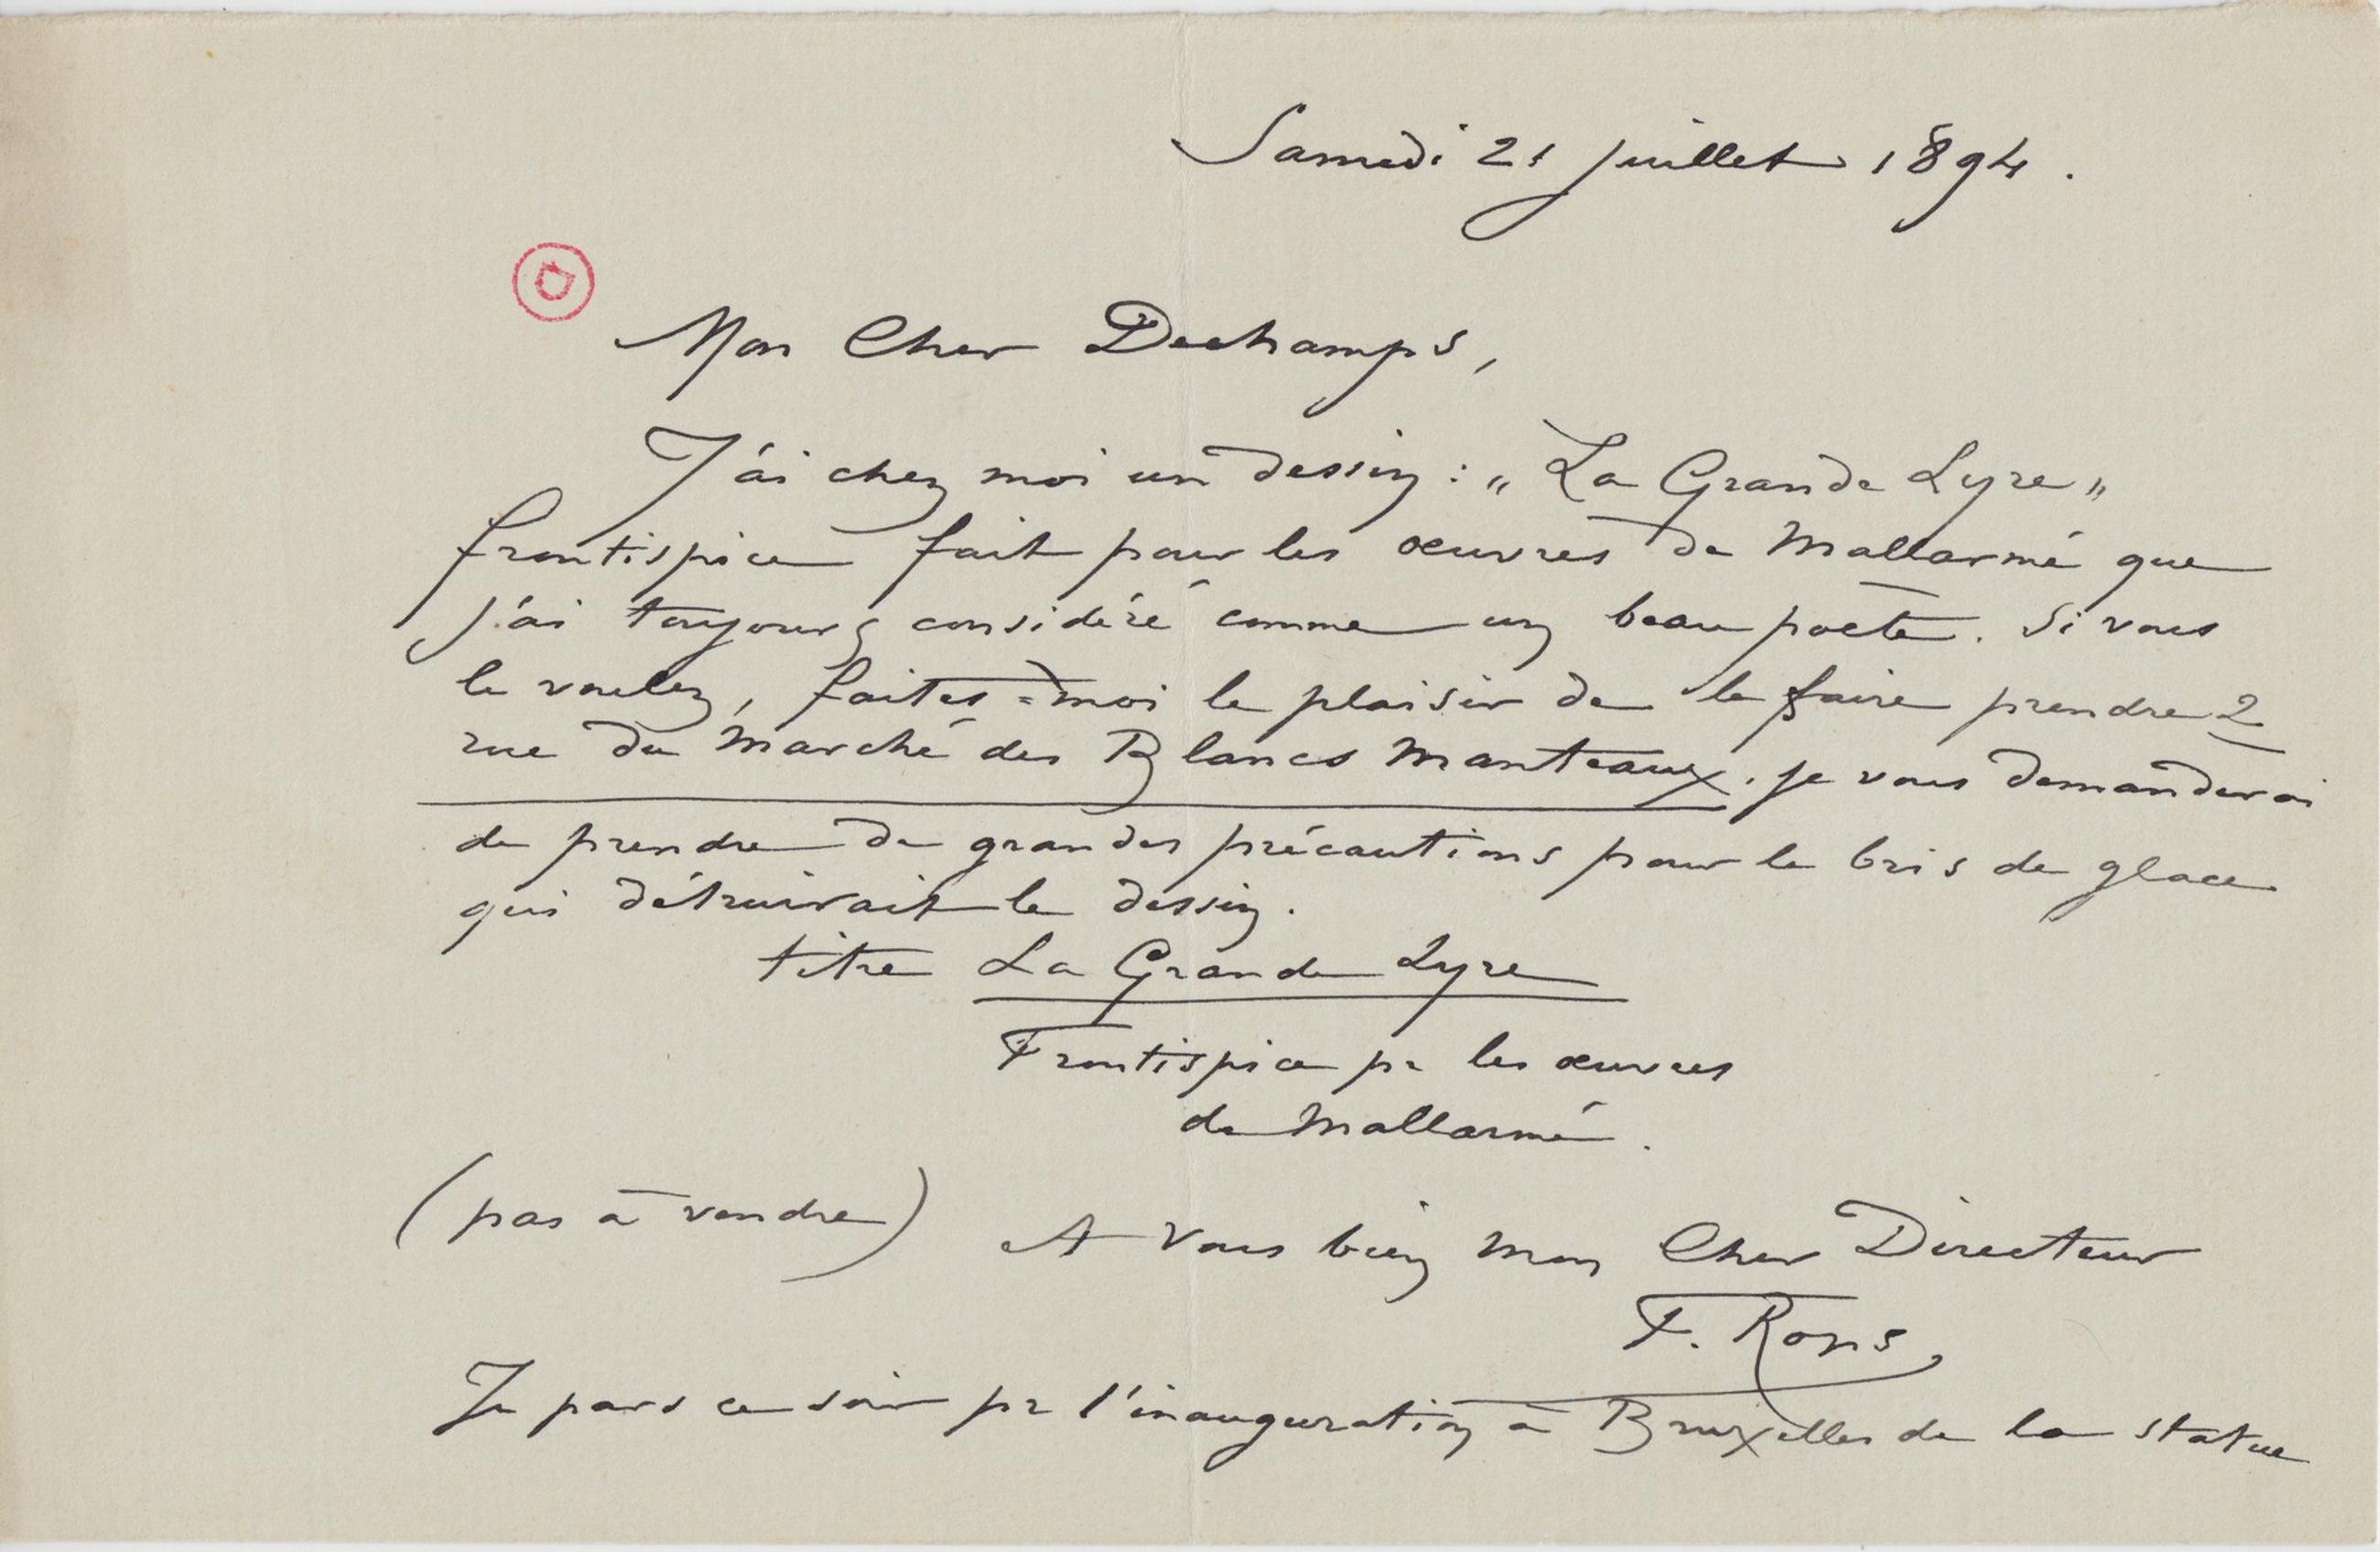 Samedi 21 juillet 1894.
Mon Cher Deschamps,
J'ai chez moi un dessin : „ La Grande Lyre „
frontispice fait pour les œuvres de Mallarmé que
j'ai toujours considéré comme un beau poète. Si vous
le voulez, faites=moi le plaisir de le faire prendre 2
rue du Marché des Blancs Manteaux. je vous demanderai
de prendre de grandes précautions pour le bris de glace
qui détruirait le dessin.
titre La Grande Lyre
Frontispice pr les œuvres
de Mallarmé.
(pas à vendre)
A vous bien mon Cher Directeur
F. Rops
Je pars ce soir pr l'inauguration à Bruxelles de la statue